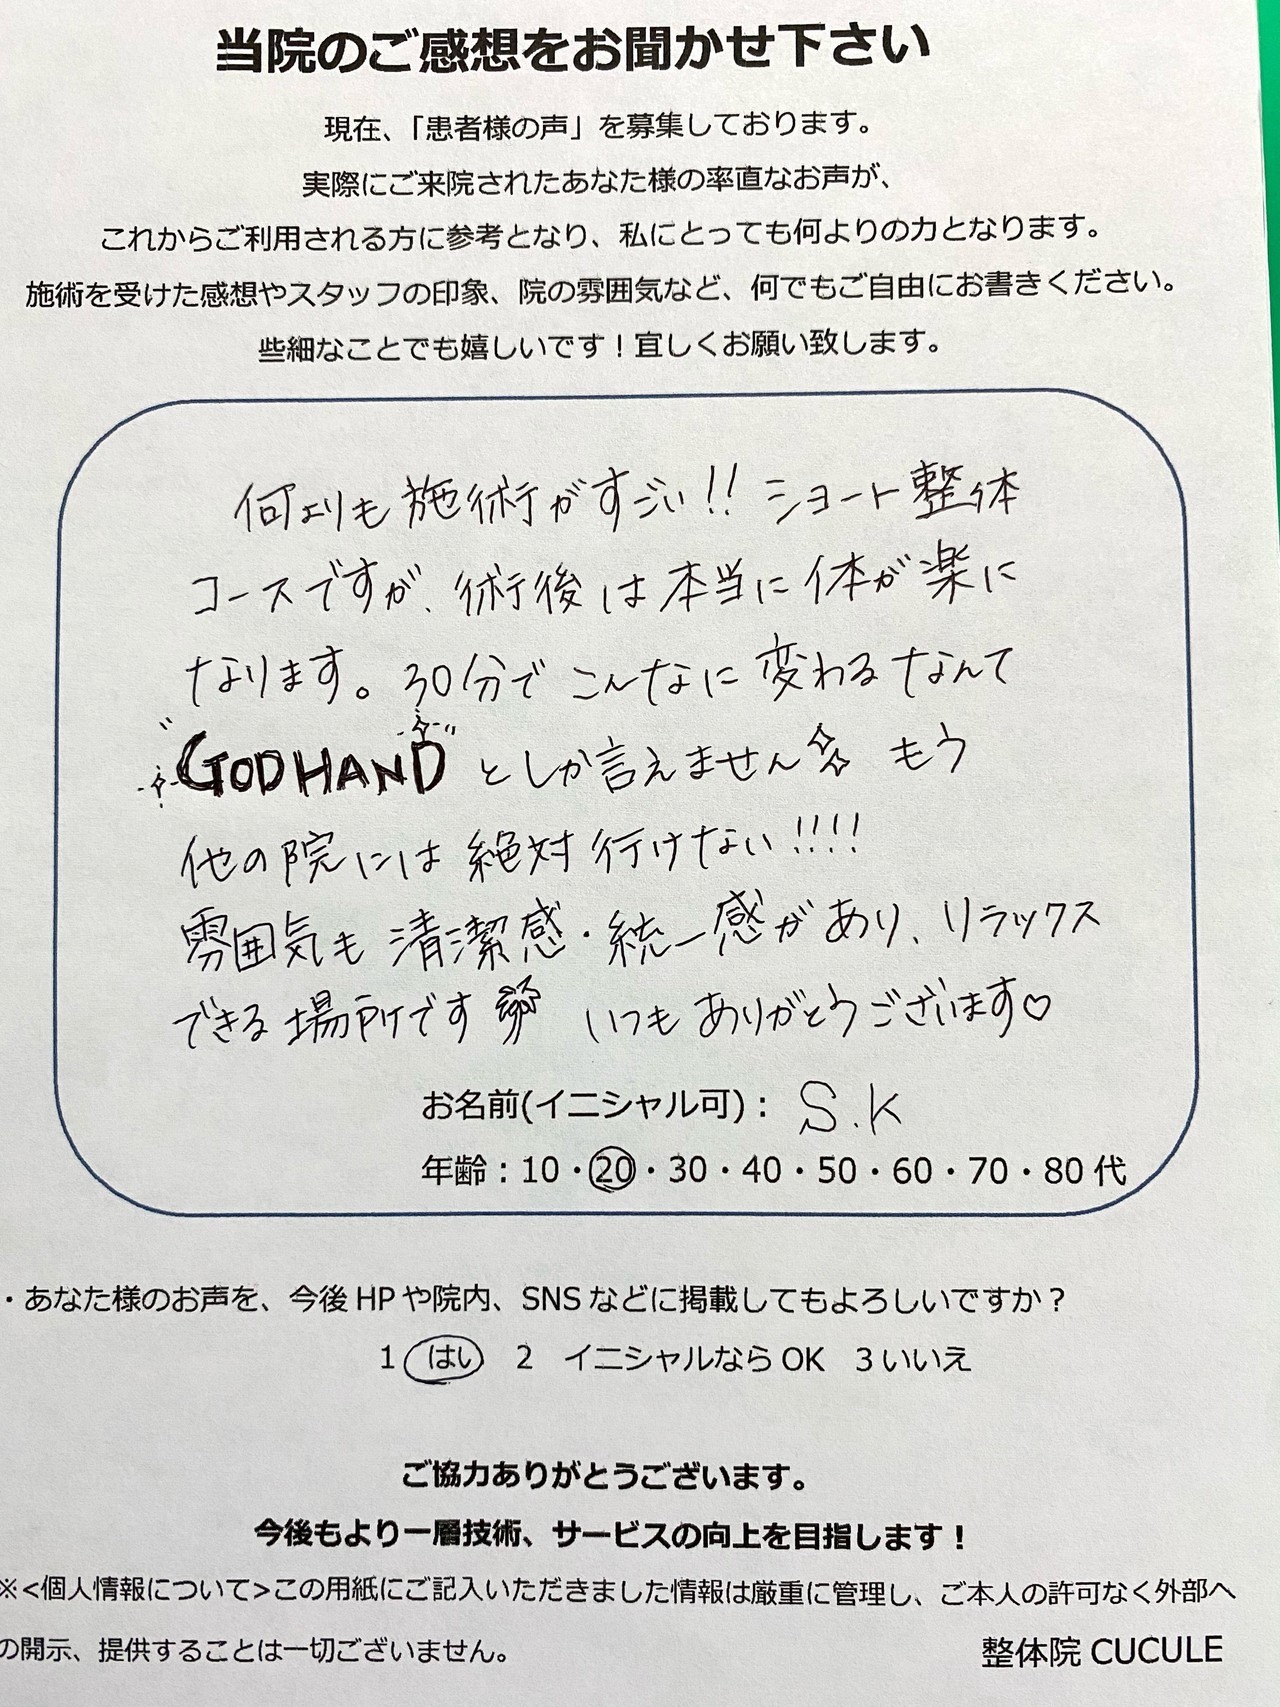 当院のご感想をお聞かせ下さい
現在、「患者様の声」を募集しております。
実際にご来院されたあなた様の率直なお声が、
これからご利用される方に参考となり、私にとっても何よりの力となります。
施術を受けた感想やスタッフの印象、院の雰囲気など、何でもご自由にお書きください。
些細なことでも嬉しいです！宜しくお願い致します。
何よりも施術がすごい!! ショート整体
コースですが、術後は本当に体が楽に
なります。30分でこんなに変わるなんて
"GODHAND"としか言えません もう
他の院には絶対行けない!!!!
雰囲気も清潔感・統一感があり、リラックス
できる場所です いつもありがとうございます♡
お名前(イニシャル可)： S.K
年齢：10・20・30・40・50・60・70・80 代
・あなた様のお声を、今後 HP や院内、SNS などに掲載してもよろしいですか？
1 はい 2 イニシャルなら OK 3 いいえ
ご協力ありがとうございます。
今後もより一層技術、サービスの向上を目指します！
※<個人情報について>この用紙にご記入いただきました情報は厳重に管理し、ご本人の許可なく外部へ
の開示、提供することは一切ございません。 整体院 CUCULE